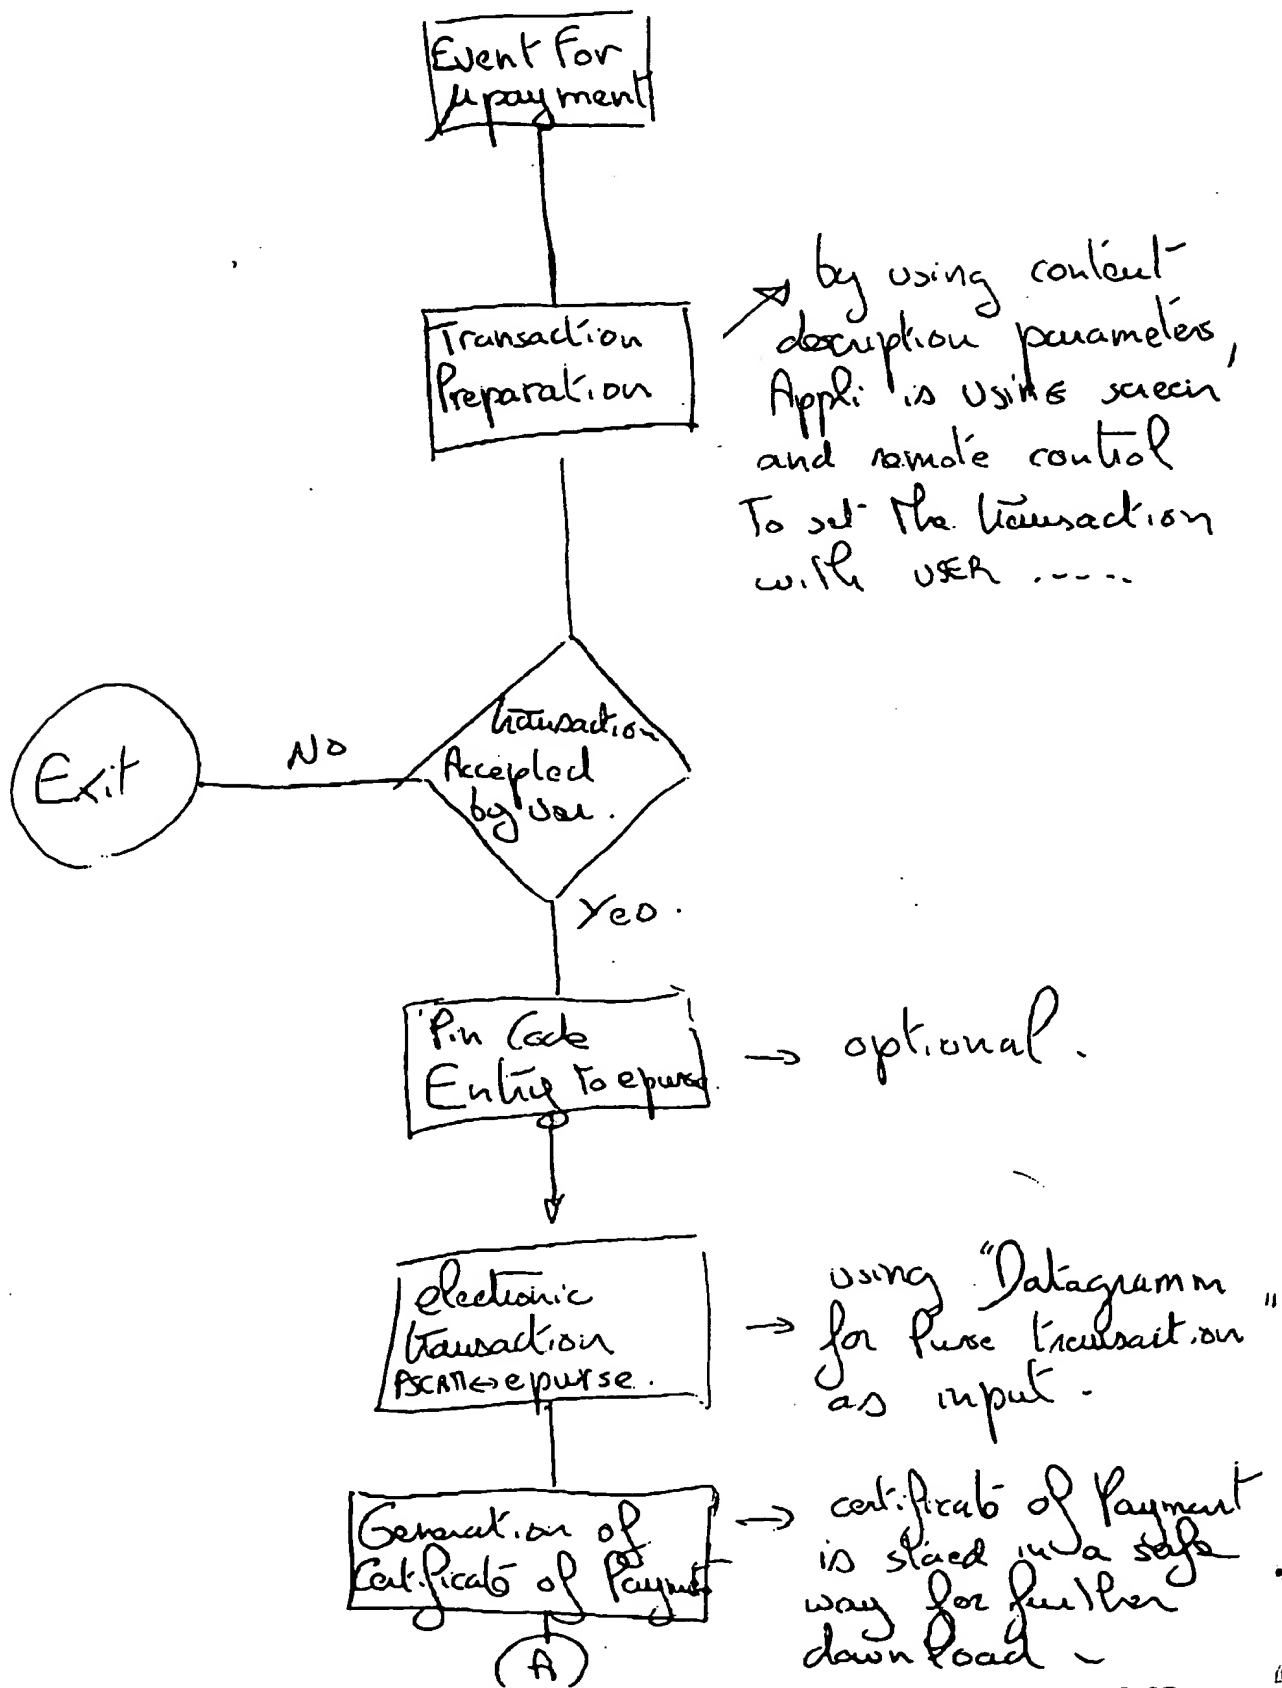 Event For
µpayment
Transaction
Preparation
by using content
description parameters,
Appli is using screen
and remote control
To set the transaction
with USER .....
transaction
Accepted
by user.
No
Exit
Yes.
Pin Code
Entry to epurse
optional.
electronic
transaction
PSCAM↔epurse.
using "Datagramm
for Purse transaction"
as input.
Generation of
Certificate of Payment
certificate of Payment
is stored in a safe
way for further
download
A